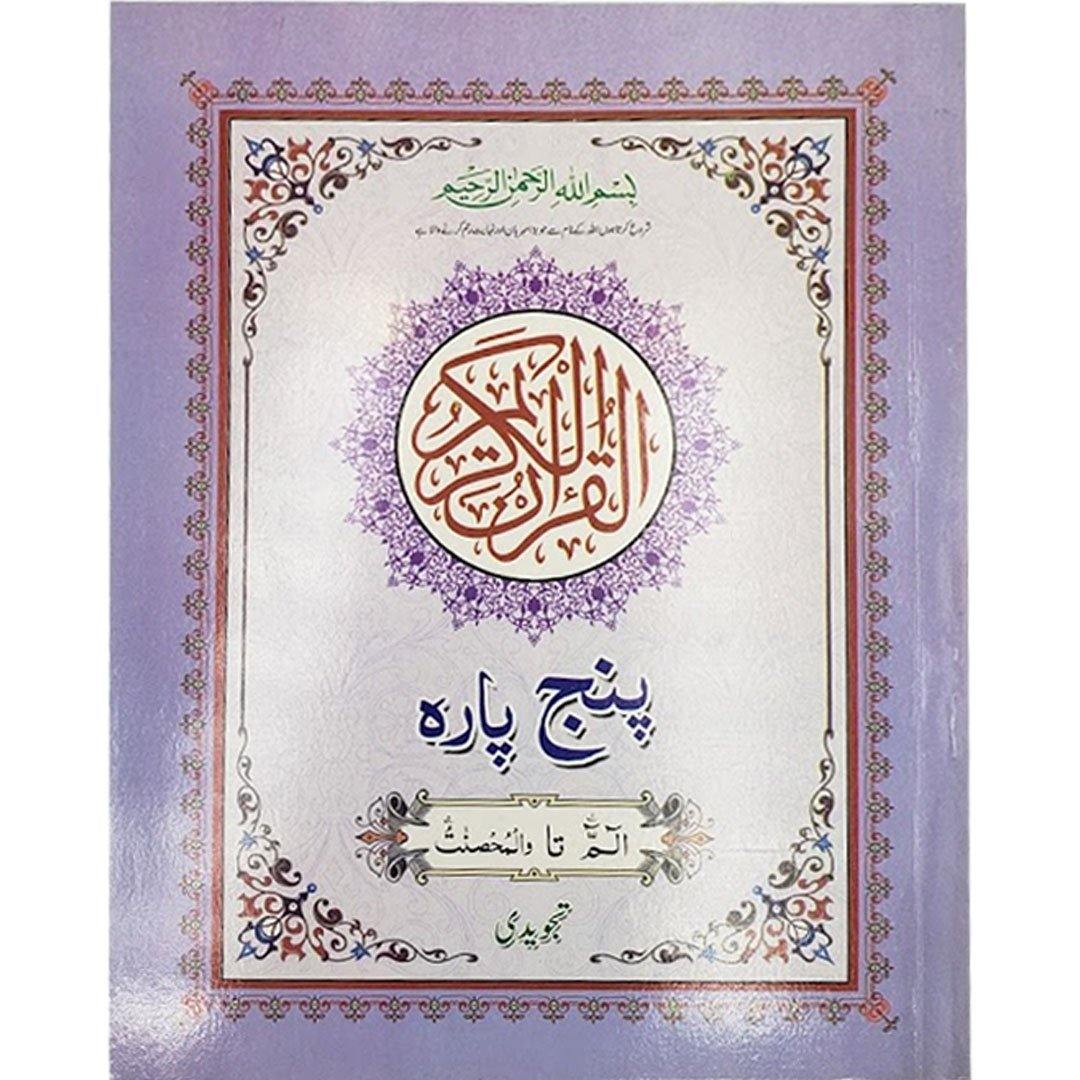 بِسْمِ اللهِ الرَّحْمٰنِ الرَّحِيْمِ
شروع کرتا ہوں اللہ کے نام سے جو بڑا مہربان اور نہایت رحم کرنے والا ہے
القرآن الكريم
پنج پارہ
الٓمّٓ تا والمُحْصَنٰتُ
تجویدی